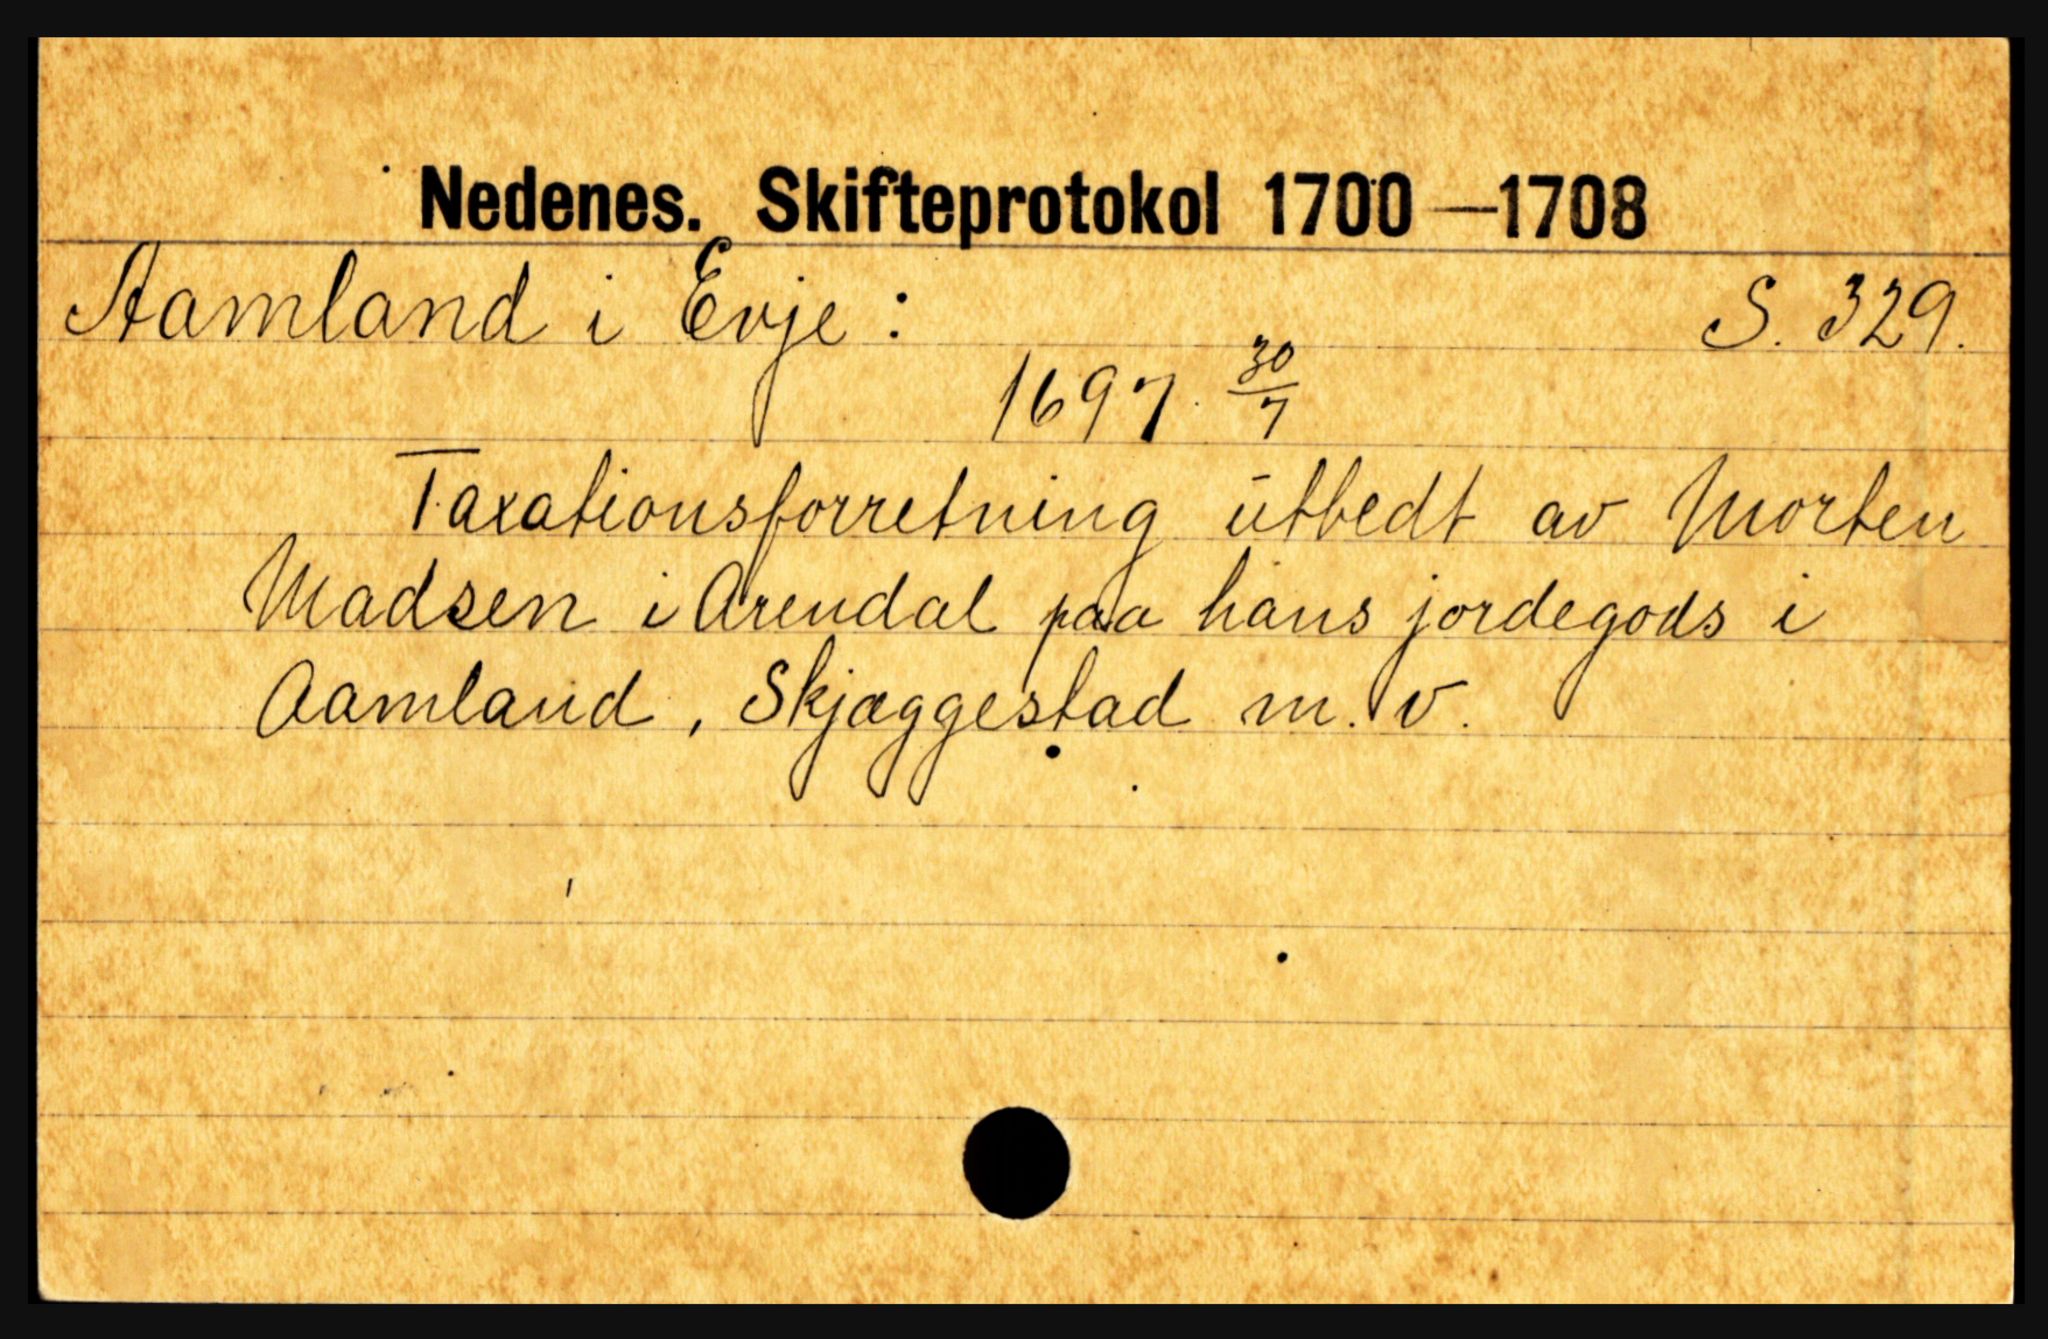 Nedenes. Skifteprotokol 1700—1708
Aamland i Evje: S. 329.
1697. 30/7
Taxationsforretning utbedt av Morten
Madsen i Arendal paa hans jordegods i
Aamland, Skjæggestad m. v.